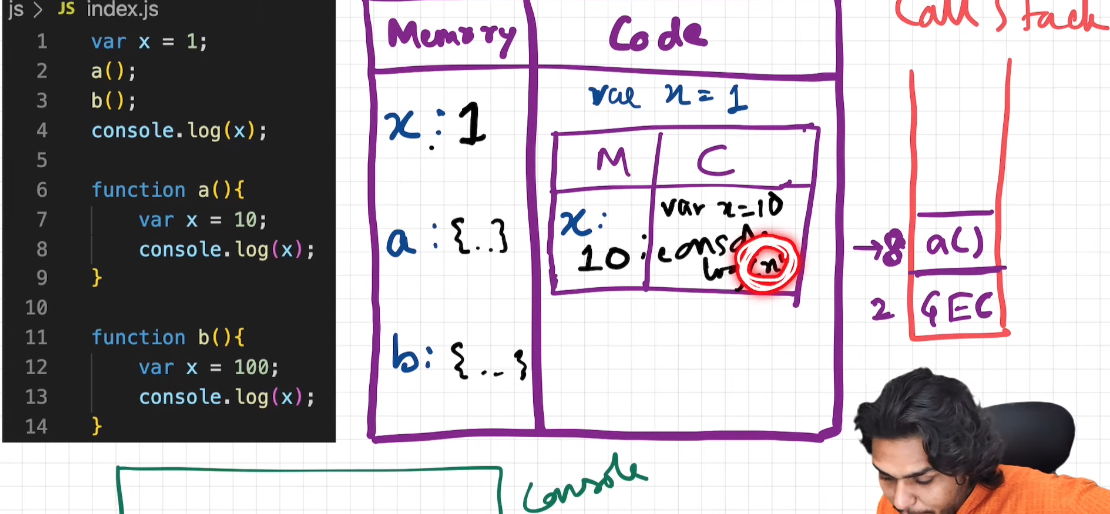 js > JS index.js
1 var x = 1;
2 a();
3 b();
4 console.log(x);
5
6 function a(){
7 var x = 10;
8 console.log(x);
9 }
10
11 function b(){
12 var x = 100;
13 console.log(x);
14 }
Memory Code
x : 1
a : {..}
b : {...}
var x = 1
M C
x : 10
var x=10
log(x)
Call Stack
→8 a()
2 GEC
Console